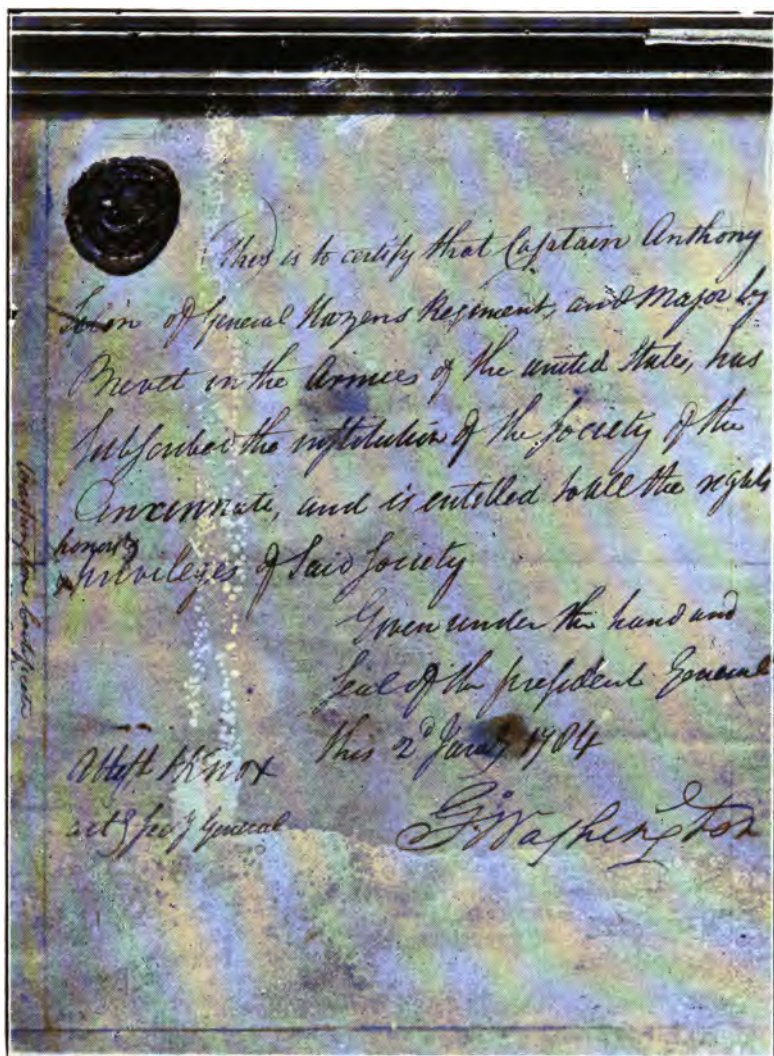 This is to certify that Captain Anthony
Selin of General Hazens Regiment, and Major by
Brevet in the Armies of the united States, has
Subscribed the institution of the Society of the
Cincinnati, and is entitled to all the rights
honors &
privileges of Said Society
Given under the hand and
Seal of the president General
this 2d Jany 1784
Attest HKnox
act g Secy General
G:Washington